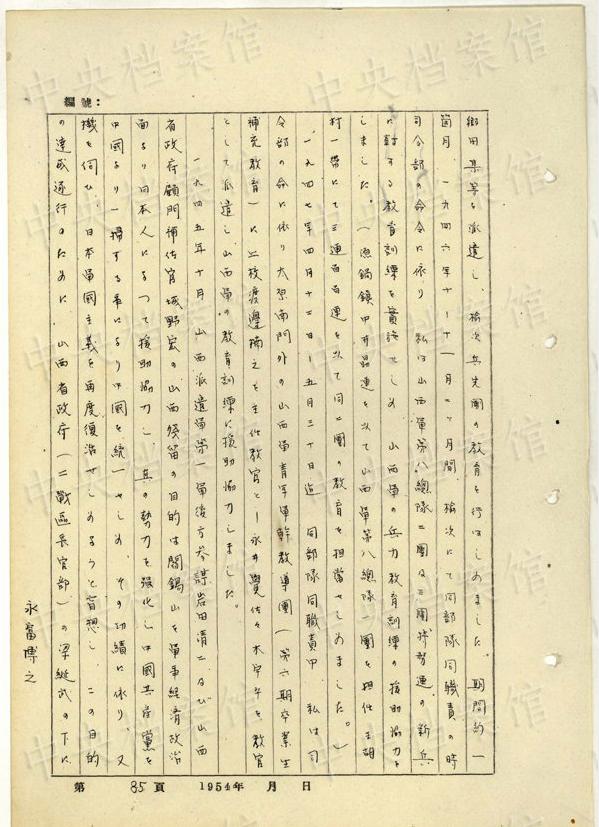 編號：
鄉田集等を派遣し、榆次兵先團の教育を行はしめました。期間約一
箇月。一九四六年十一十一月二ヶ月間、榆次にて同部隊同職責の時
司令部の命令に依り、私は山西軍第八總隊二團及三團 連の新兵
に対する教育訓練を實施せしめ、山西軍の兵力教育訓練の援助協力を
しました。（ 鎮中井 連を以て山西軍第八總隊一團を担任王胡
村一帶にて三連 連を以て同二團の教育を担當せしめました。）
一九四七年四月十二日ー五月三十日迄 同部隊同職責中 私は司
令部の命に依り太原南門外の山西軍青年軍幹教導團（第六期卒業生
補充教育）に 渡邊 之を主任教官とし永井 佐々木 を教官
として派遣し山西軍の教育訓練に援助協力しました。
一九四五年十月 山西派遣軍第一軍後方参謀岩田清一及び山西
省政府顧問補佐官城野宏の山西殘留の目的は閻錫山を軍事經済政治
面より日本人によって援助協力し、其の勢力を强化し中國共産党を
中國より一掃する事により中國を統一せしめ、その功績に依り、又
機を伺ひ、日本軍國主義を再度復活せしめようと盲想し、この目的
の達成遂行のために、山西省政府（二戰區長官部）の梁綖武の下に
永富博之
第 85 頁 1954年 月 日
中央档案馆